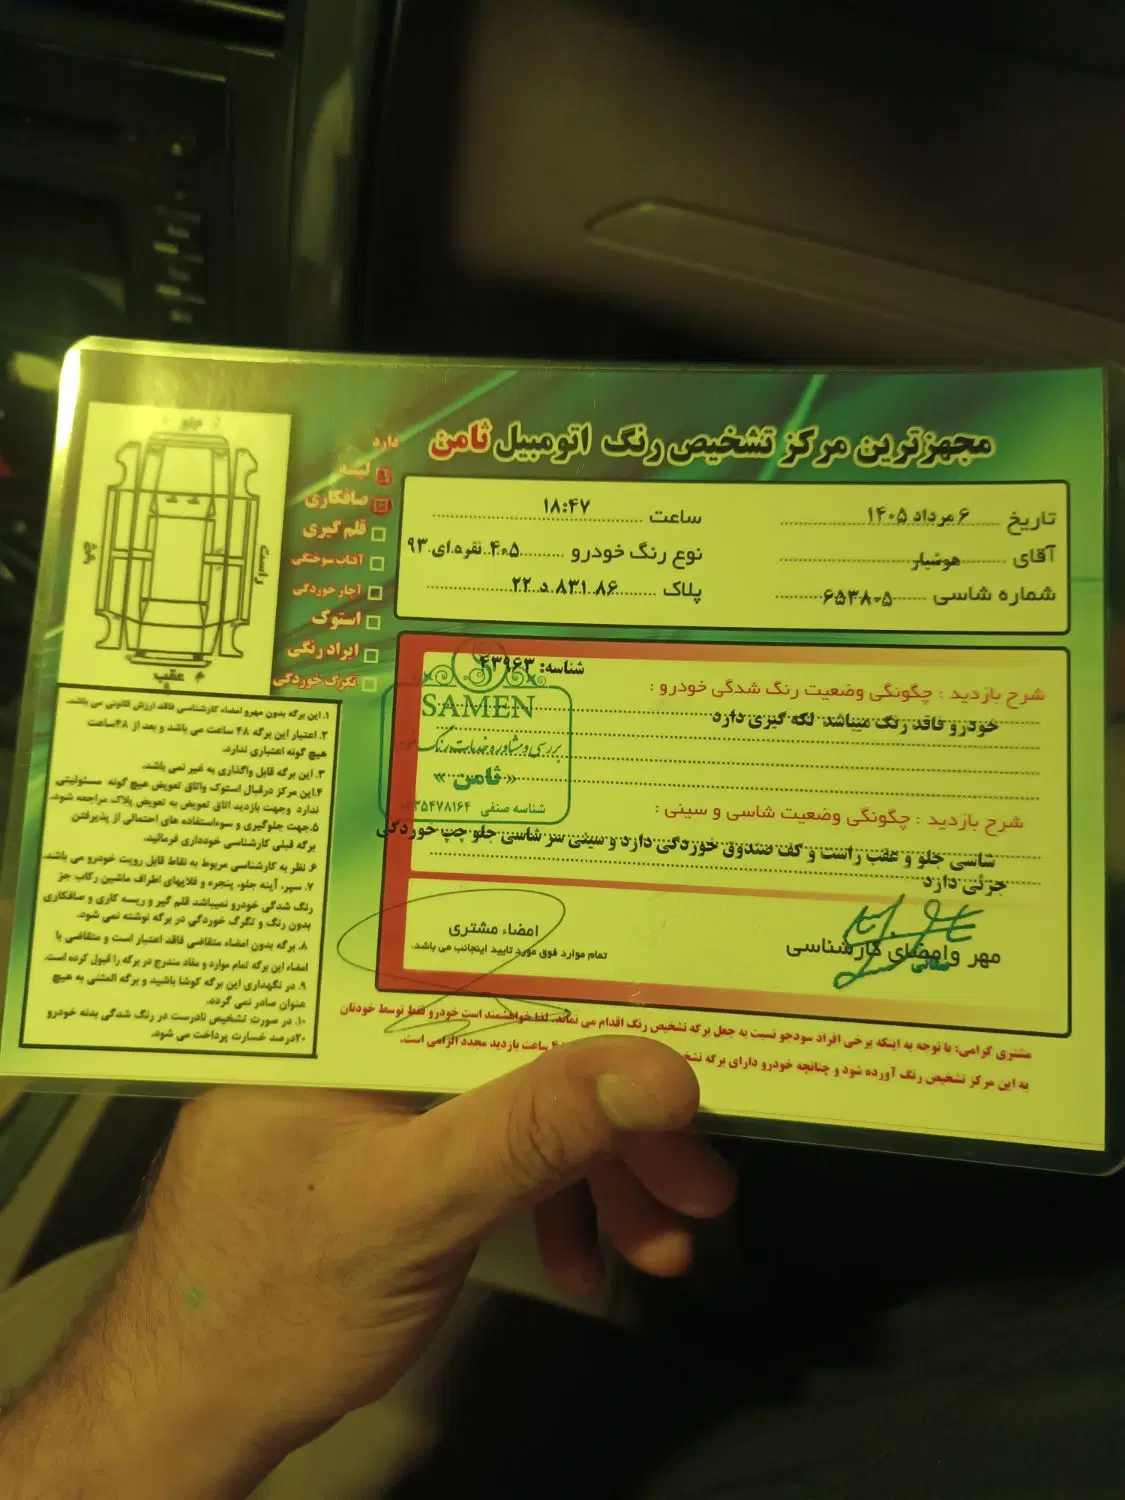 مجهزترین مرکز تشخیص رنگ اتومبیل ثامن
تاریخ ۶ مرداد ۱۴۰۵ ساعت ۱۸:۴۷
آقای هوشیار نوع رنگ خودرو ۴۰۵ نقره ای ۹۳
شماره شاسی ۶۵۳۸۰۵ پلاک ۸۶ ۸۳۱ د ۲۲
شناسه: ۴۳۹۶۳
شرح بازدید : چگونگی وضعیت رنگ شدگی خودرو :
خودرو فاقد رنگ میباشد لکه گیری دارد
SAMEN
بررسی و مشاوره خدمات رنگ
« ثامن »
شناسه صنفی ۳۵۴۷۸۱۶۴
شرح بازدید : چگونگی وضعیت شاسی و سینی :
شاسی جلو و عقب راست و کف صندوق خوردگی دارد و سینی سر شاسی جلو چپ خوردگی
جزئی دارد
مهر وامضای کارشناسی
امضاء مشتری
تمام موارد فوق مورد تایید اینجانب می باشد.
مشتری گرامی: با توجه به اینکه برخی افراد سودجو نسبت به جعل برگه تشخیص رنگ اقدام می نمایند. لذا خواهشمند است خودرو فقط توسط خودتان
به این مرکز تشخیص رنگ آورده شود و چنانچه خودرو دارای برگه ساعت بازدید مجدد الزامی است.
دارد
لیسه
صافکاری
قلم گیری
آفتاب سوختگی
آچار خوردگی
استوک
ایراد رنگی
تگرگ خوردگی
جلو
راست
چپ
عقب
۱. این برگه بدون مهرو امضاء کارشناسی فاقد ارزش قانونی می باشد.
۲. اعتبار این برگه ۴۸ ساعت می باشد و بعد از ۴۸ساعت
هیچ گونه اعتباری ندارد.
۳. این برگه قابل واگذاری به غیر نمی باشد.
۴.این مرکز درقبال استوک واتاق تعویض هیچ گونه مسئولیتی
ندارد وجهت بازدید اتاق تعویض به تعویض پلاک مراجعه شود.
۵.جهت جلوگیری و سوءاستفاده های احتمالی از پذیرفتن
برگه قبلی کارشناسی خودداری فرمائید.
۶. نظر به کارشناسی مربوط به نقاط قابل رویت خودرو می باشد.
۷. سپر، آینه جلو، پنجره و قلابهای اطراف ماشین رکاب جز
رنگ شدگی خودرو نمیباشد قلم گیر و ریسه کاری و صافکاری
بدون رنگ و تگرگ خوردگی در برگه نوشته نمی شود.
۸. برگه بدون امضاء متقاضی فاقد اعتبار است و متقاضی با
امضاء این برگه تمام موارد و مفاد مندرج در برگه را قبول کرده است.
۹. در نگهداری این برگه کوشا باشید و برگه المثنی به هیچ
عنوان صادر نمی گردد.
۱۰. در صورت تشخیص نادرست در رنگ شدگی بدنه خودرو
۲۰درصد خسارت پرداخت می شود.